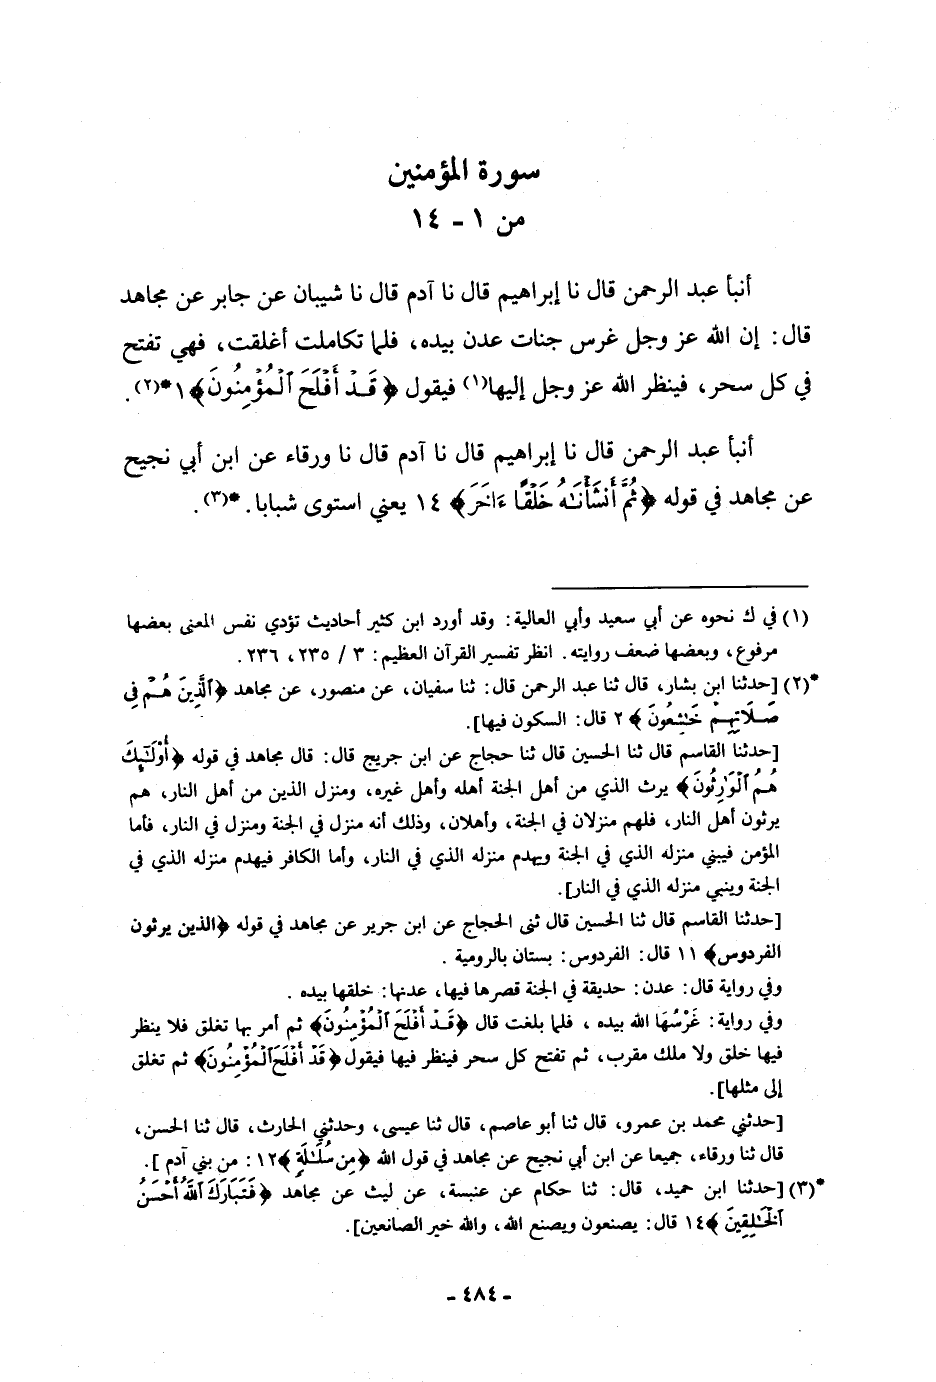 سورة المؤمنين
من ١ - ١٤
أنبأ عبد الرحمن قال نا إبراهيم قال نا آدم قال نا شيبان عن جابر عن مجاهد
قال: إن الله عز وجل غرس جنات عدن بيده، فلما تكاملت أغلقت، فهي تفتح
في كل سحر، فينظر الله عز وجل إليها(١) فيقول ﴿قَدْ أَفْلَحَ ٱلْمُؤْمِنُونَ﴾ ١*(٢).
أنبأ عبد الرحمن قال نا إبراهيم قال نا آدم قال نا ورقاء عن ابن أبي نجيح
عن مجاهد في قوله ﴿ثُمَّ أَنشَأْنَـٰهُ خَلْقًا ءَاخَرَ﴾ ١٤ يعني استوى شبابا. *(٣).
(١) في ك نحوه عن أبي سعيد وأبي العالية: وقد أورد ابن كثير أحاديث تؤدي نفس المعنى بعضها
مرفوع، وبعضها ضعف روايته. انظر تفسير القرآن العظيم: ٣ / ٢٣٥، ٢٣٦.
*(٢) [حدثنا ابن بشار، قال ثنا عبد الرحمن قال: ثنا سفيان، عن منصور، عن مجاهد ﴿ٱلَّذِينَ هُمْ فِى
صَلَاتِهِمْ خَـٰشِعُونَ﴾ ٢ قال: السكون فيها].
[حدثنا القاسم قال ثنا الحسين قال ثنا حجاج عن ابن جريج قال: قال مجاهد في قوله ﴿أُوْلَـٰٓئِكَ
هُمُ ٱلْوَٰرِثُونَ﴾ يرث الذي من أهل الجنة أهله وأهل غيره، ومنزل الذين من أهل النار، هم
يرثون أهل النار، فلهم منزلان في الجنة، وأهلان، وذلك أنه منزل في الجنة ومنزل في النار، فأما
المؤمن فيبني منزله الذي في الجنة ويهدم منزله الذي في النار، وأما الكافر فيهدم منزله الذي في
الجنة وينبي منزله الذي في النار].
[حدثنا القاسم قال ثنا الحسين قال ثنى الحجاج عن ابن جرير عن مجاهد في قوله ﴿الذين يرثون
الفردوس﴾ ١١ قال: الفردوس: بستان بالرومية .
وفي رواية قال: عدن: حديقة في الجنة قصرها فيها، عدنها: خلقها بيده .
وفي رواية: غَرْسُهَا الله بيده ، فلما بلغت قال ﴿قَدْ أَفْلَحَ ٱلْمُؤْمِنُونَ﴾ ثم أمر بها تغلق فلا ينظر
فيها خلق ولا ملك مقرب، ثم تفتح كل سحر فينظر فيها فيقول ﴿قَدْ أَفْلَحَ ٱلْمُؤْمِنُونَ﴾ ثم تغلق
إلى مثلها].
[حدثني محمد بن عمرو، قال ثنا أبو عاصم، قال ثنا عيسى، وحدثني الحارث، قال ثنا الحسن،
قال ثنا ورقاء، جميعا عن ابن أبي نجيح عن مجاهد في قول الله ﴿مِن سُلَـٰلَةٍ﴾ ١٢: من بني آدم ].
*(٣) [حدثنا ابن حميد، قال: ثنا حكام عن عنبسة، عن ليث عن مجاهد ﴿فَتَبَارَكَ ٱللَّهُ أَحْسَنُ
ٱلْخَـٰلِقِينَ﴾ ١٤ قال: يصنعون ويصنع الله، والله خير الصانعين].
- ٤٨٤ -